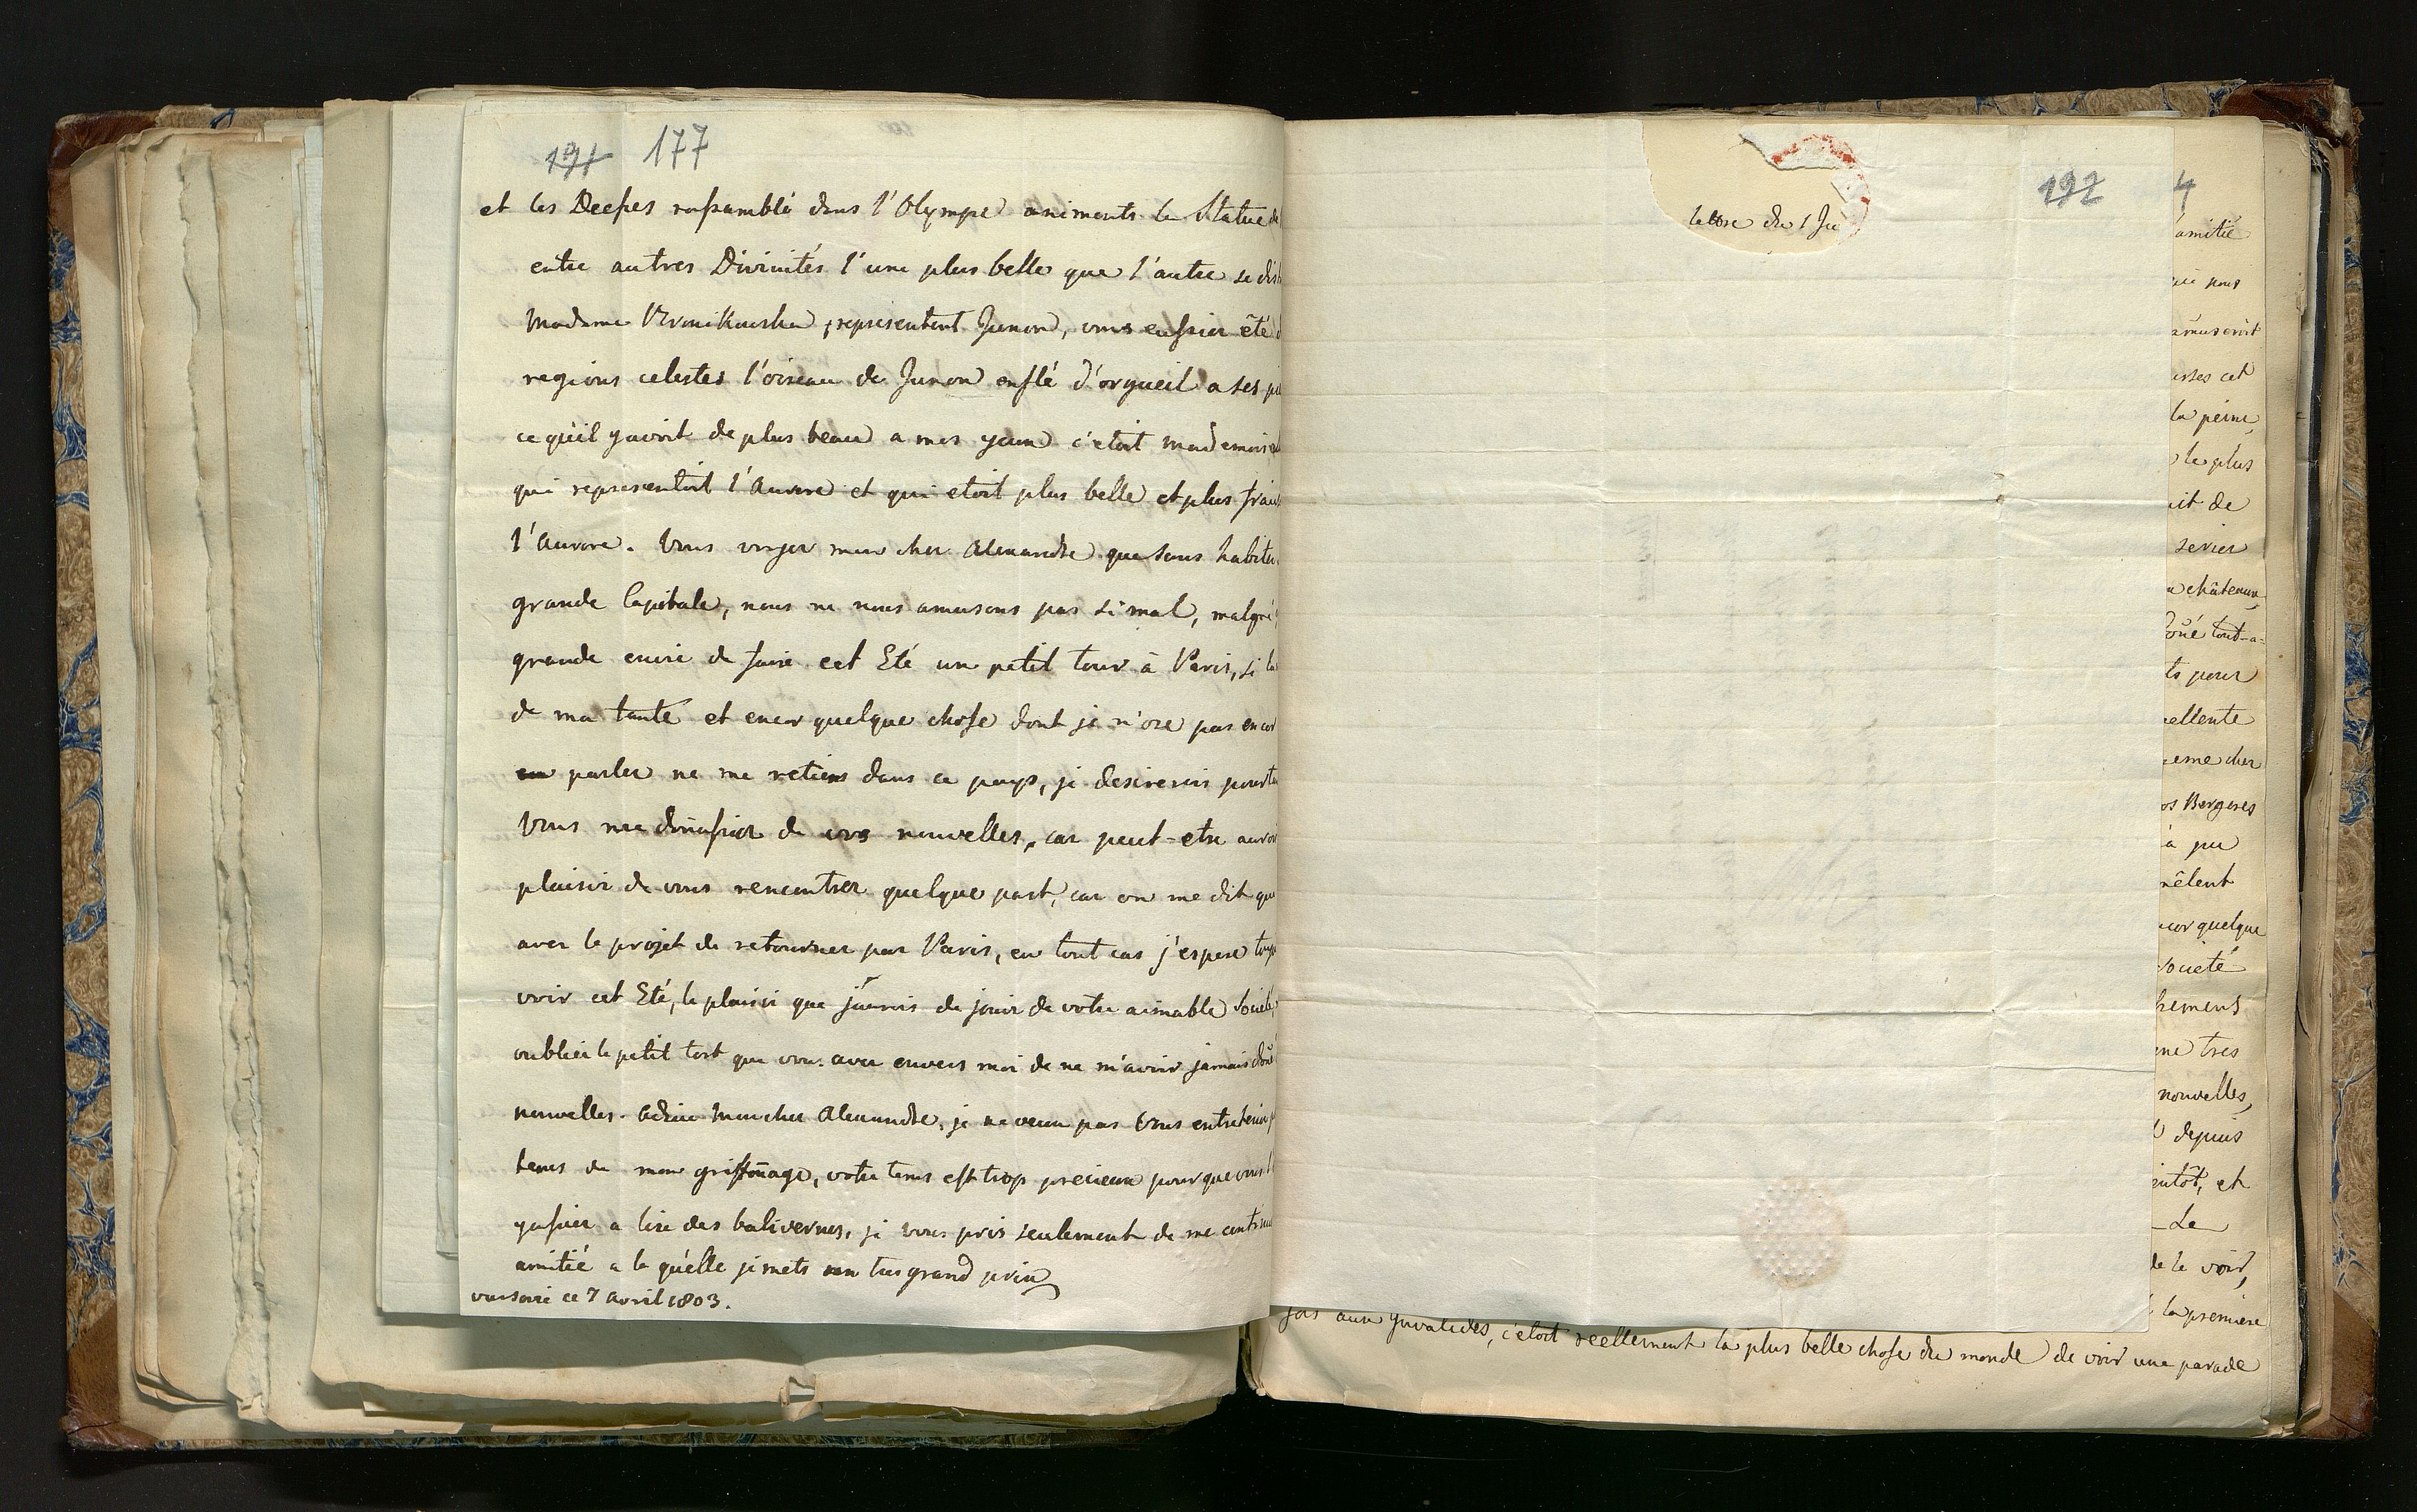 191 177
et les Deesses rassamblé dans l'Olympe animants la Statue de
entre autres Divinités l'une plus belle que l'autre se dist
Madame representent Junon, vous eussier été
regions celestes l'oiseau de Junon enflé d'orgueil a ses pi
ce qu'il y avoit de plus beau a mes yeux c'etoit mademoisel
qui representoit l'Aurore et qui etoit plus belle et plus fraich
l'Aurore. Vous voyer mon cher Alexandre que sans habiter
grande Capitale, nous ne nous amusons pas si mal, malgré
grande envie de faire cet Eté un petit tour à Paris, si la
de ma tante et encor quelque chose dont je n'ose pas encor
en parler ne me retiens dans ce pays, je desirerois pourta
Vous me donassier de vos nouvelles, car peut-etre auroi
plaisir de vous rencontrer quelque part, car on me dit que
aver le projet de retourner par Paris, en tout cas j'espere touj
voir cet Eté, le plaisir que j'aurois de jouir de votre aimable Societé,
oublier le petit tort que vous aver envers moi de ne m'avoir jamais doñé
nouvelles. Adieu mon cher Alexandre, je ne veux pas Vous entretenir p
tems de mon griffoñage, votre tems est trop precieux pour que vous l
passier a lire des balivernes, je vous pris seulement de me continu
amitié a la qu'elle je mets un tres grand prix
varsovie ce 7 Avril 1803.
lettre du 1 Ju
192
4
amitié
qui nous
amuseroit
cet
la peine,
le plus
it de
serier
châteaux,
doñé tout-a-
ts pour
ellente
eme cher
os Bergeres
à pu
mêlent
ncor quelque
Societé
hemens
une tres
nouvelles,
depuis
ientôt, et
Le
de le voir,
la premiere
fois aux Invalides, c'etoit reellement la plus belle chose du monde de voir une parade